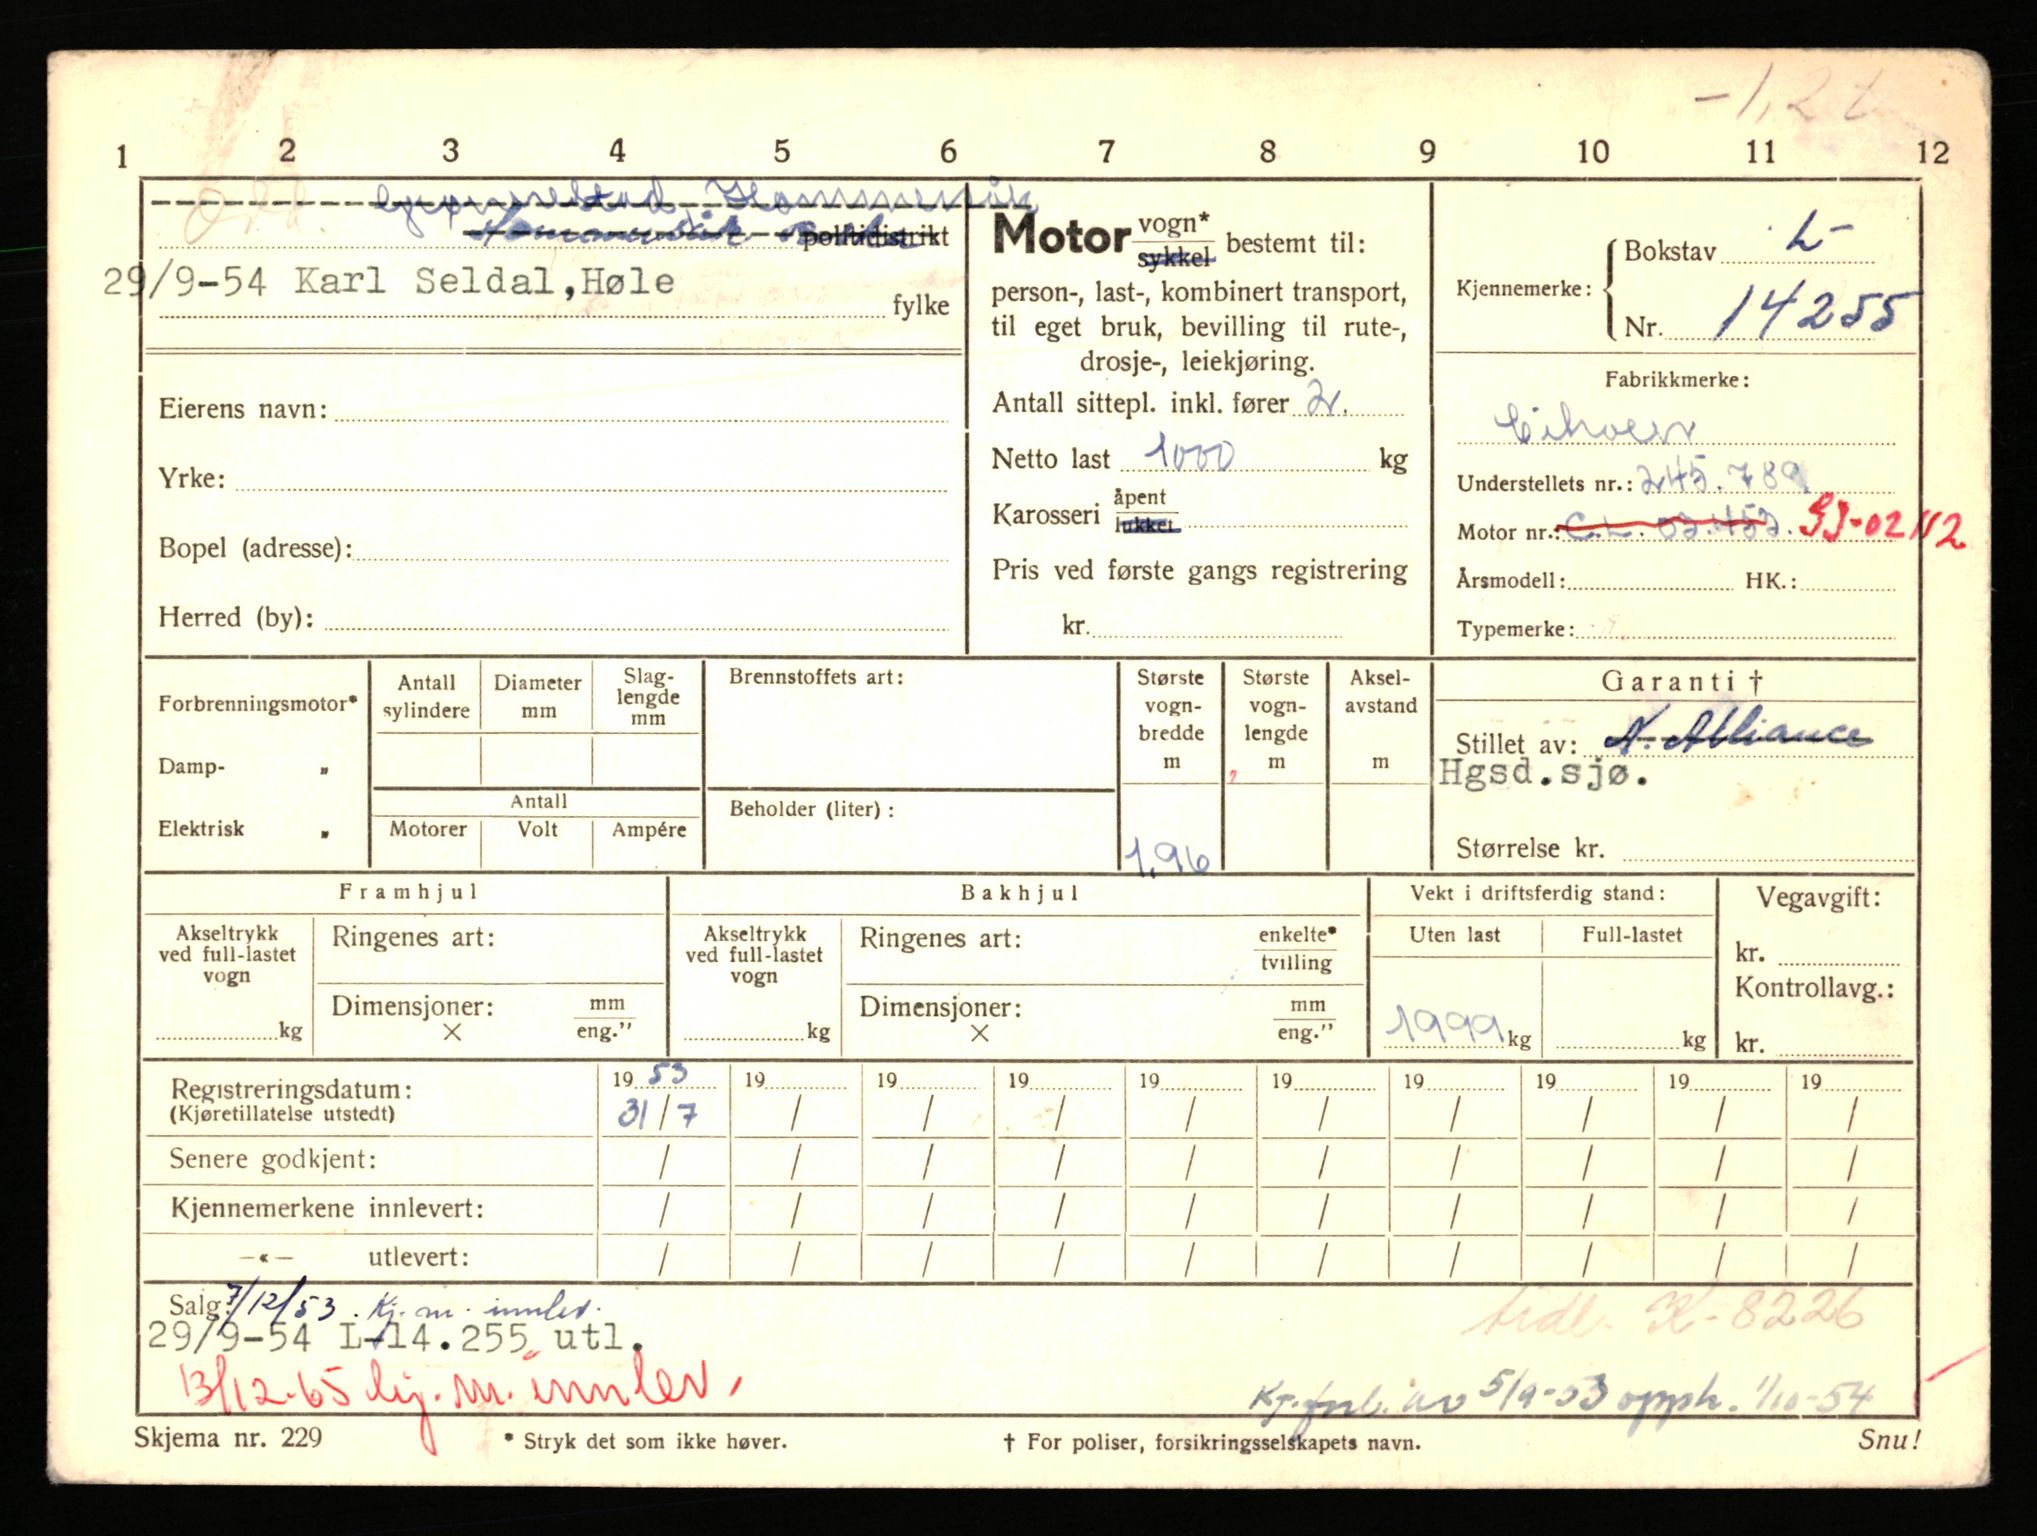 -1,2t
1 2 3 4 5 6 7 8 9 10 11 12
Hommersåk
politidistrikt
29/9-54 Karl Seldal,Høle
fylke
Eierens navn:
Yrke:
Bopel (adresse):
Herred (by):
Motor vogn* sykkel bestemt til:
person-, last-, kombinert transport,
til eget bruk, bevilling til rute-,
drosje-, leiekjøring.
Antall sittepl. inkl. fører 2.
Netto last 1000 kg
Karosseri åpent lukket
Pris ved første gangs registrering
kr.
Kjennemerke: Bokstav L-
Nr. 14255
Fabrikkmerke:
Citroen
Understellets nr.: 245.789
Motor nr.: C.L. 03.453. 02112
Årsmodell: HK.:
Typemerke:
Forbrenningsmotor*
Damp- „
Elektrisk „
Antall sylindere
Diameter mm
Slag-lengde mm
Antall
Motorer Volt Ampére
Brennstoffets art:
Beholder (liter):
Største vogn-bredde m
1,96
Største vogn-lengde m
Aksel-avstand m
Garanti †
Stillet av: N. Alliance
Hgsd.sjø.
Størrelse kr.
Framhjul
Akseltrykk ved full-lastet vogn
kg
Ringenes art:
Dimensjoner: mm
× eng.”
Bakhjul
Akseltrykk ved full-lastet vogn
kg
Ringenes art: enkelte* tvilling
Dimensjoner: mm
× eng.”
Vekt i driftsferdig stand:
Uten last Full-lastet
1999 kg kg
Vegavgift:
kr.
Kontrollavg.:
kr.
Registreringsdatum: 19 53 19 19 19 19 19 19 19 19 19
(Kjøretillatelse utstedt) 31/7 / / / / / / / / /
Senere godkjent: / / / / / / / / / /
Kjennemerkene innlevert: / / / / / / / / / /
—«— utlevert: / / / / / / / / / /
Salg: 7/12/53. Kj. m. innlev.
29/9-54 L-14.255 utl.
13/12-65 kj. m. innlev.
tidl. K-8226
Kj.forb. av 5/9-53 opph. 1/10-54
Skjema nr. 229
* Stryk det som ikke høver.
† For poliser, forsikringsselskapets navn.
Snu!